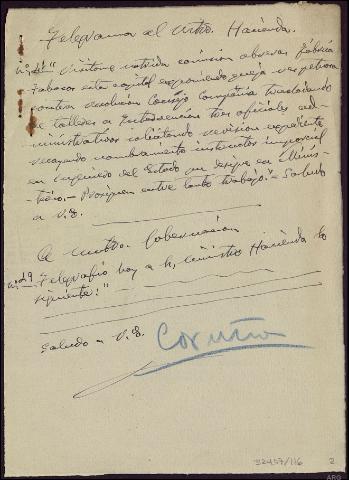 Telegrama al Mtro. Hacienda.
nº 41 " Visitome nutrida comisión obreras fábrica
Tabacos esta capital exponiendo queja respetuosa
contra resolución Consejo Compañía trasladando
de talleres a Intendencia tres oficiales ad-
ministrativos solicitando revisión expediente
recayendo nombramiento instructor imparcial
en ingeniero del Estado que designe ese Minis-
terio. - Prosiguen entre tanto trabajo." - Saludo
a V.E.
A Mntro. Gobernación
nº 49 Telegrafío hoy a Sr. ministro Hacienda lo
siguiente: "
Saludo a V.E.
Coruña
32457/116
2
ARG